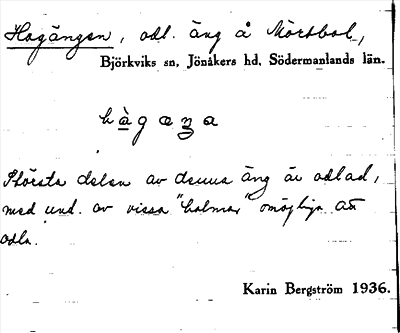 Hagängen, odl. äng å Mörtbol,
Björkviks sn, Jönåkers hd, Södermanlands län.
h à g æ n a
Största delen av denna äng är odlad,
med und. av vissa "holmar" omöjliga att
odla.
Karin Bergström 1936.